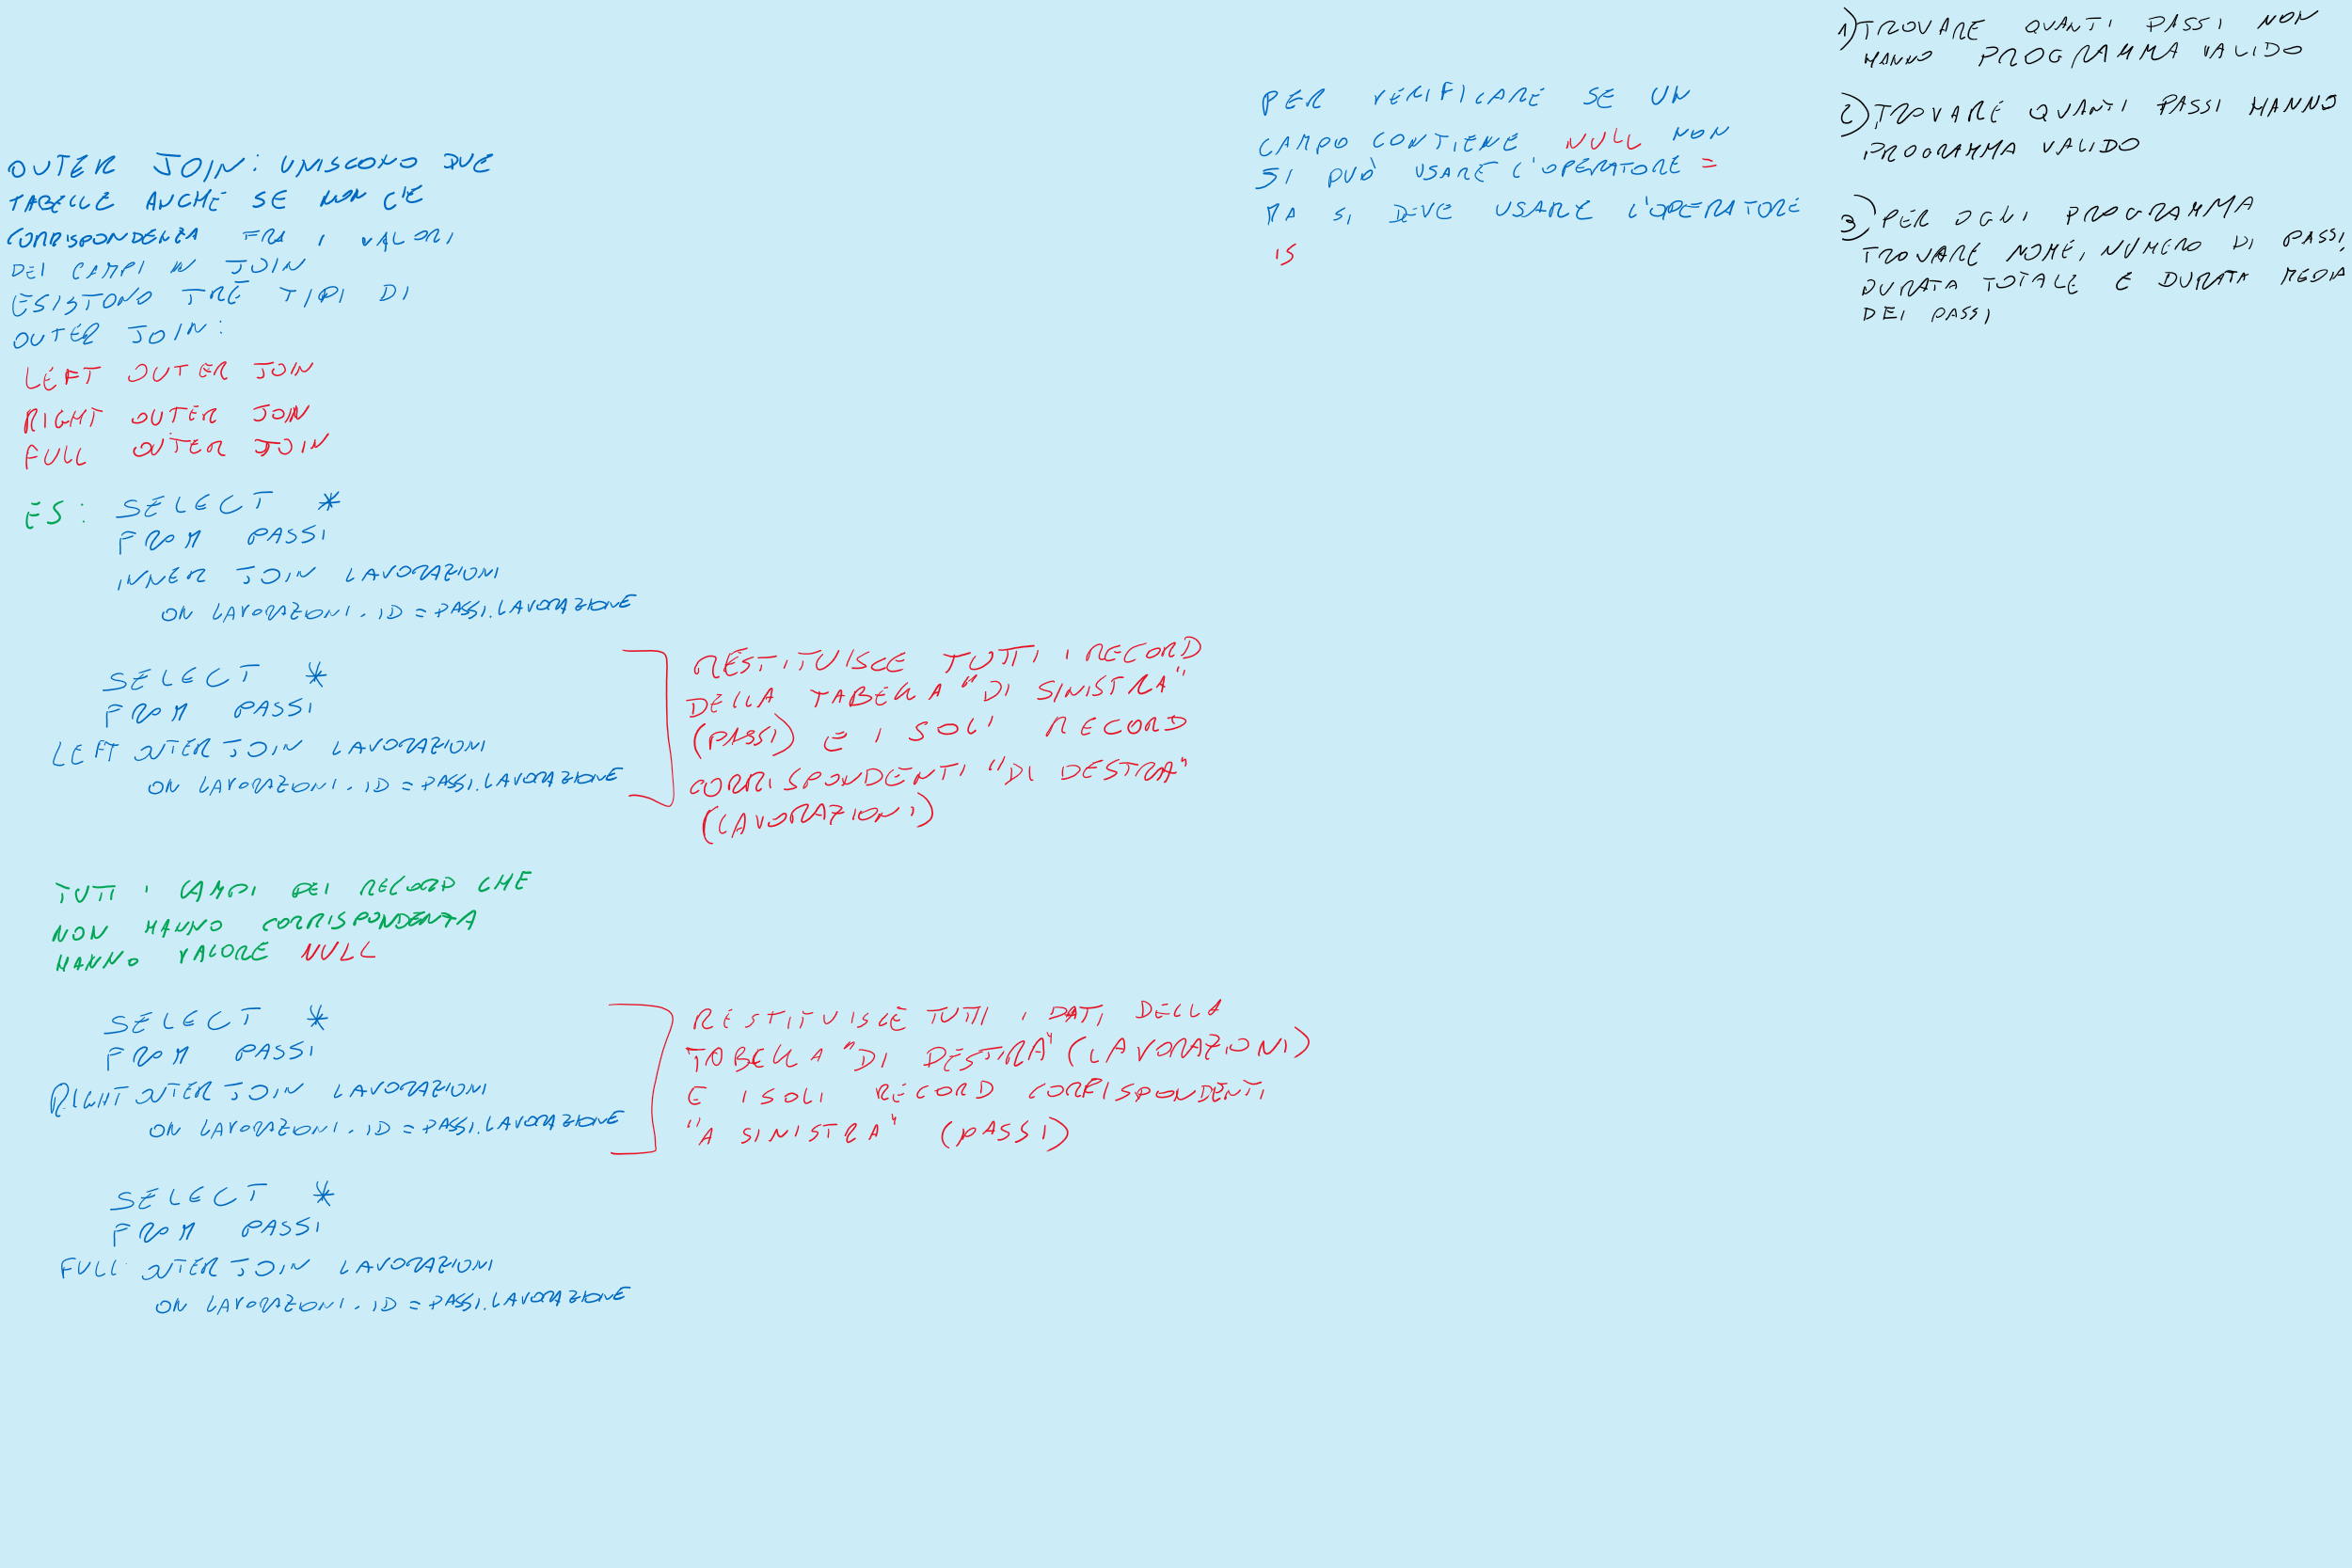 OUTER JOIN: UNISCONO DUE
TABELLE ANCHE SE NON C'E
CORRISPONDENZA FRA I VALORI
DEI CAMPI IN JOIN
ESISTONO TRE TIPI DI
OUTER JOIN:
LEFT OUTER JOIN
RIGHT OUTER JOIN
FULL OUTER JOIN
ES: SELECT *
FROM PASSI
INNER JOIN LAVORAZIONI
ON LAVORAZIONI.ID = PASSI.LAVORAZIONE
SELECT *
FROM PASSI
LEFT OUTER JOIN LAVORAZIONI
ON LAVORAZIONI.ID = PASSI.LAVORAZIONE
RESTITUISCE TUTTI I RECORD
DELLA TABELLA "DI SINISTRA"
(PASSI) E I SOLI RECORD
CORRISPONDENTI "DI DESTRA"
(LAVORAZIONI)
TUTTI I CAMPI DEI RECORD CHE
NON HANNO CORRISPONDENZA
HANNO VALORE NULL
SELECT *
FROM PASSI
RIGHT OUTER JOIN LAVORAZIONI
ON LAVORAZIONI.ID = PASSI.LAVORAZIONE
RESTITUISCE TUTTI I DATI DELLA
TABELLA "DI DESTRA" (LAVORAZIONI)
E I SOLI RECORD CORRISPONDENTI
"A SINISTRA" (PASSI)
SELECT *
FROM PASSI
FULL OUTER JOIN LAVORAZIONI
ON LAVORAZIONI.ID = PASSI.LAVORAZIONE
PER VERIFICARE SE UN
CAMPO CONTIENE NULL NON
SI PUÒ USARE L'OPERATORE =
MA SI DEVE USARE L'OPERATORE
IS
1) TROVARE QUANTI PASSI NON
HANNO PROGRAMMA VALIDO
2) TROVARE QUANTI PASSI HANNO
PROGRAMMA VALIDO
3) PER OGNI PROGRAMMA
TROVARE NOME, NUMERO DI PASSI,
DURATA TOTALE E DURATA MEDIA
DEI PASSI